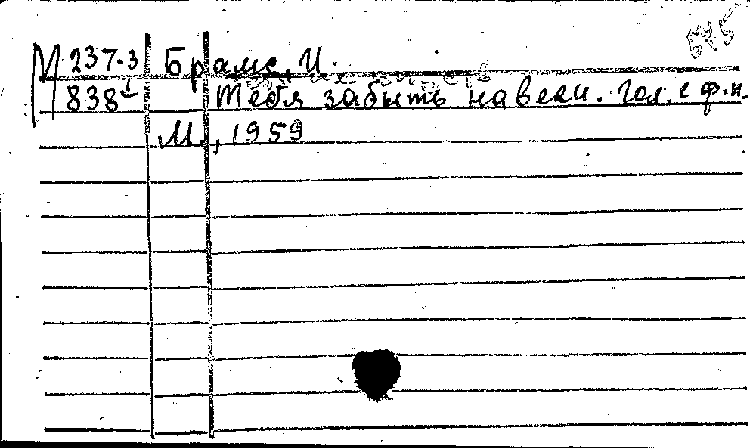 М 237-3 Брамс, И.
838 Тебя забыть навеки. Гол. с ф.-п.
М., 1959